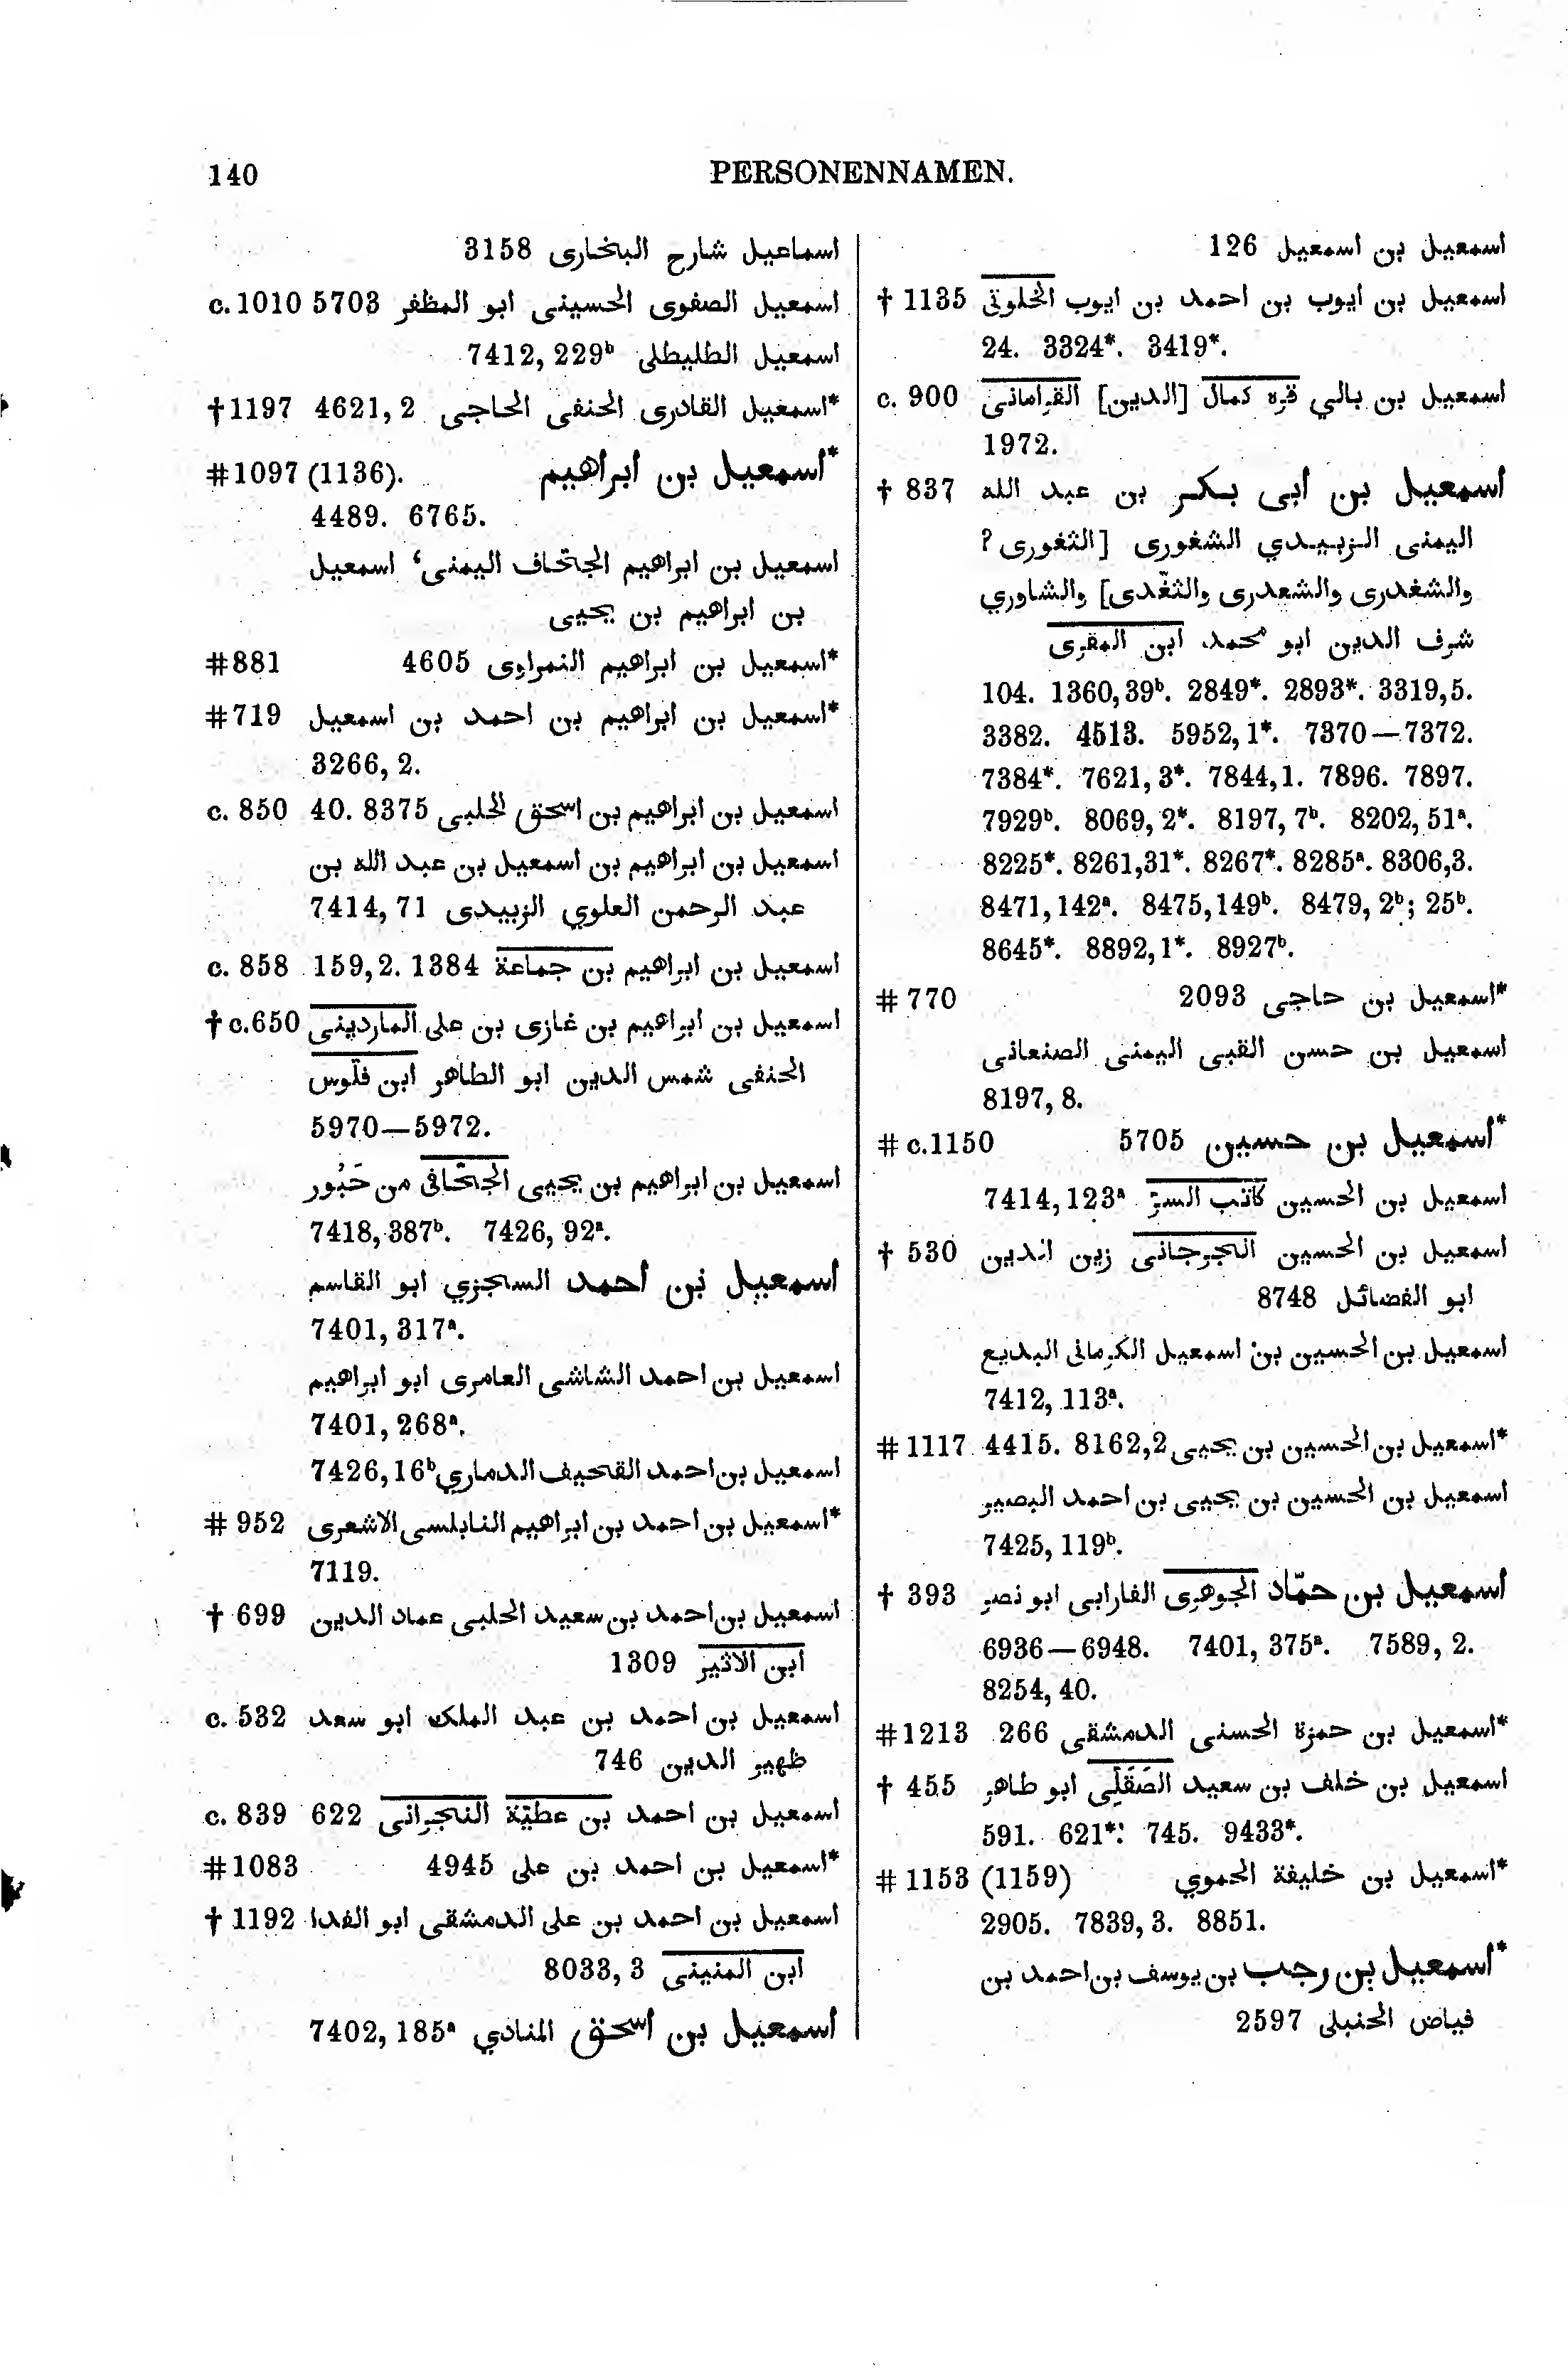 140
PERSONENNAMEN.
اسماعيل شارح البخارى 3158
اسمعيل الصفوى الحسينى ابو المظفر c. 1010 5703
اسمعيل الطليطلى 7412, 229ᵇ
*اسمعيل القادرى الحنفى الحاجى †1197 4621, 2
*اسمعيل بن ابراهيم #1097 (1136).
4489. 6765.
اسمعيل بن ابراهيم الجحاف اليمنى، اسمعيل
بن ابراهيم بن يحيى
*اسمعيل بن ابراهيم النمراوى 4605 #881
*اسمعيل بن ابراهيم بن احمد بن اسمعيل #719
3266, 2.
اسمعيل بن ابراهيم بن اسحق الحلبى c. 850 40. 8375
اسمعيل بن ابراهيم بن اسمعيل بن عبد الله بن
عبد الرحمن العلوي الزبيدى 7414, 71
اسمعيل بن ابراهيم بن جماعة c. 858 159,2. 1384
اسمعيل بن ابراهيم بن غازى بن على الماردينى †c.650
الحنفى شمس الدين ابو الطاهر ابن فلّوس
5970—5972.
اسمعيل بن ابراهيم بن يحيى الجحّافى من حَبُور
7418, 387ᵇ. 7426, 92ᵃ.
اسمعيل بن احمد السجزي ابو القاسم
7401, 317ᵃ.
اسمعيل بن احمد الشاشى العامرى ابو ابراهيم
7401, 268ᵃ.
اسمعيل بن احمد القحيف الدماري 7426,16ᵇ
*اسمعيل بن احمد بن ابراهيم النابلسى الاشعرى #952
7119.
اسمعيل بن احمد بن سعيد الحلبى عماد الدين †699
ابن الاثير 1309
اسمعيل بن احمد بن عبد الملك ابو سعد c. 532
ظهير الدين 746
اسمعيل بن احمد بن عطيّة النجرانى c. 839 622
*اسمعيل بن احمد بن على 4945 #1083
اسمعيل بن احمد بن على الدمشقى ابو الفدا †1192
ابن المنينى 8033, 3
اسمعيل بن اسحق المنادي 7402, 185ᵃ
اسمعيل بن اسمعيل 126
اسمعيل بن ايوب بن احمد بن ايوب الخلوتى †1135
24. 3324*. 3419*.
اسمعيل بن بالي قره كمال [الدين] القرامانى c. 900
1972.
اسمعيل بن ابى بكر بن عبد الله †837
اليمنى الزبيدي الشغورى [الثغورى ?
والشغدرى والشعدرى والثغّدى] والشاوري
شرف الدين ابو محمد ابن المقرى
104. 1360,39ᵇ. 2849*. 2893*. 3319,5.
3382. 4513. 5952,1*. 7370—7372.
7384*. 7621,3*. 7844,1. 7896. 7897.
7929ᵇ. 8069,2*. 8197,7ᵇ. 8202,51ᵃ.
8225*. 8261,31*. 8267*. 8285ᵃ. 8306,3.
8471,142ᵃ. 8475,149ᵇ. 8479, 2ᵇ; 25ᵇ.
8645*. 8892,1*. 8927ᵇ.
*اسمعيل بن حاجى 2093 #770
اسمعيل بن حسن القبى اليمنى الصنعانى
8197, 8.
*اسمعيل بن حسين 5705 #c.1150
اسمعيل بن الحسين كاتب السرّ 7414,123ᵃ
اسمعيل بن الحسين الجرجانى زين الدين †530
ابو الفضائل 8748
اسمعيل بن الحسين بن اسمعيل الكرمانى البديع
7412, 113ᵃ.
*اسمعيل بن الحسين بن يحيى #1117 4415. 8162,2
اسمعيل بن الحسين بن يحيى بن احمد البصير
7425, 119ᵇ.
اسمعيل بن حمّاد الجوهرى الفارابى ابو نصر †393
6936—6948. 7401, 375ᵃ. 7589, 2.
8254, 40.
*اسمعيل بن حمزة الحسنى الدمشقى 266 #1213
اسمعيل بن خلف بن سعيد الصَقَلِّى ابو طاهر †455
591. 621*. 745. 9433*.
*اسمعيل بن خليفة الحموي #1153 (1159)
2905. 7839, 3. 8851.
*اسمعيل بن رجب بن يوسف بن احمد بن
فياض الحنبلى 2597